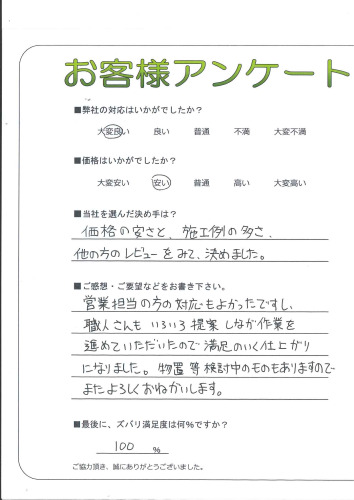 お客様アンケート
■弊社の対応はいかがでしたか？
大変良い 良い 普通 不満 大変不満
■価格はいかがでしたか？
大変安い 安い 普通 高い 大変高い
■当社を選んだ決め手は？
価格の安さと、施工例の多さ、
他の方のレビューをみて、決めました。
■ご感想・ご要望などをお書き下さい。
営業担当の方の対応もよかったですし、
職人さんも いろいろ提案しなが作業を
進めていただいたので満足のいく仕上がり
になりました。物置等検討中のものもありますので
またよろしくおねがいします。
■最後に、ズバリ満足度は何％ですか？
100 %
ご協力頂き、誠にありがとうございました。